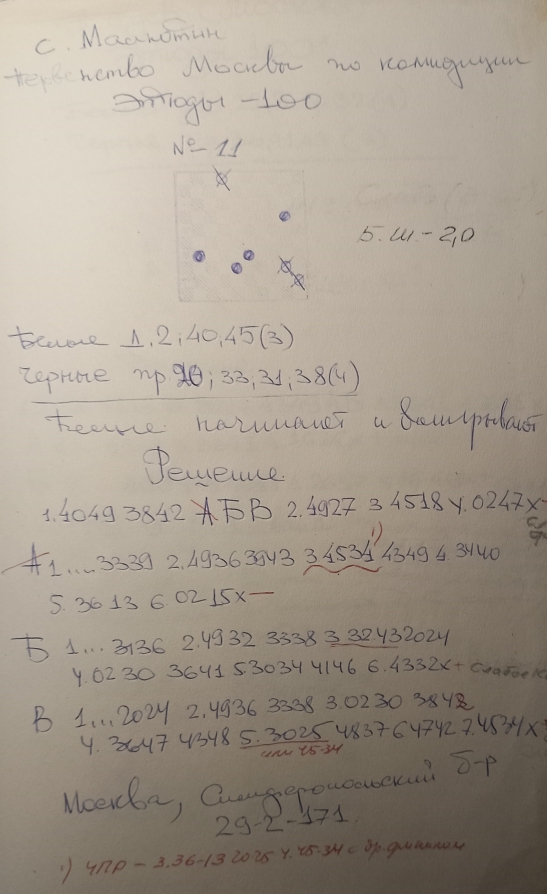 С. Маанбтин
первенство Москвы по композиции
Этюды -100
№- 11
Б.Ш - 2,0
Белые Д.2; 40, 45(3)
Черные пр 20; 33, 31, 38(4)
Белые начинают и выигрывают
Решение
1.4049 3842 А Б В 2.4927 3 4518 4.0247x
А 1 .... 3339 2.4936 3943 3 4534 1) 4349 4.3440
5. 36 13 6.02 15x —
Б 1... 3136 2.4932 3338 3 3243 2024
4.0230 3641 53034 4146 6.4332x+
В 1...2024 2.4936 3338 3.0230 3842
4.3647 4348 5.3025 4837 64742 7.4534x
или 45-34
Москва, Симферопольский б-р
29-2-171.
1) ЧПР - 3.36-13 2025 4.45-34 с др. финалом